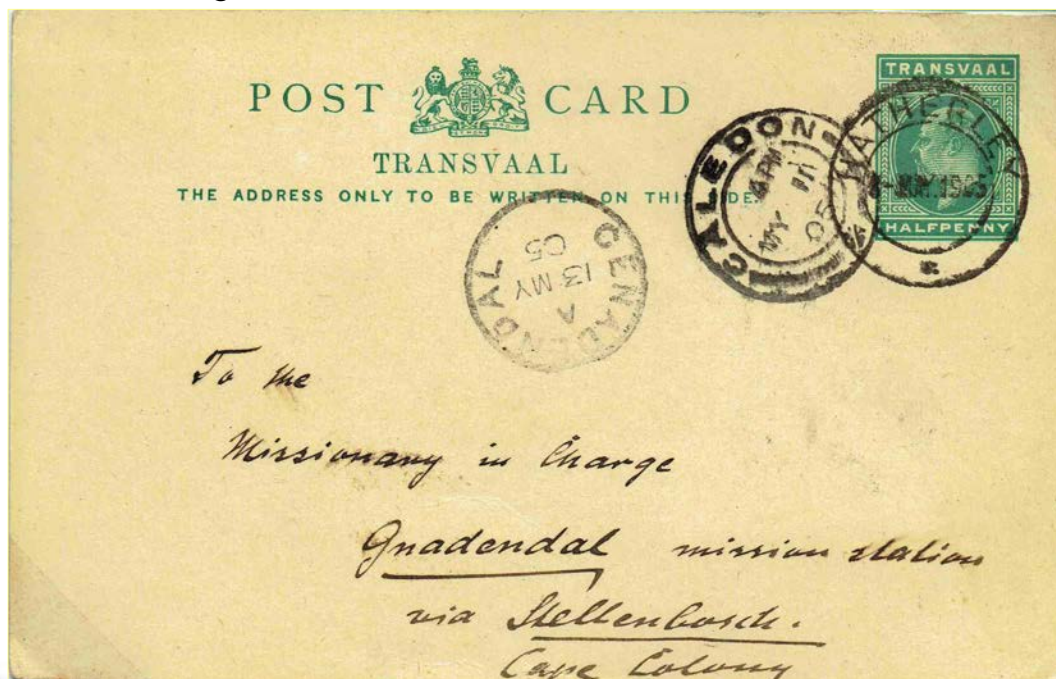 POST CARD
TRANSVAAL
THE ADDRESS ONLY TO BE WRITTEN ON THIS SIDE.
TRANSVAAL
HALFPENNY
HATHERLEY
MAY.1905
CALEDON
4 PM
MY
05
GENADENDAL
A
13 MY
05
To the
Missionary in Charge
Gnadendal mission station
via Stellenbosch.
Cape Colony